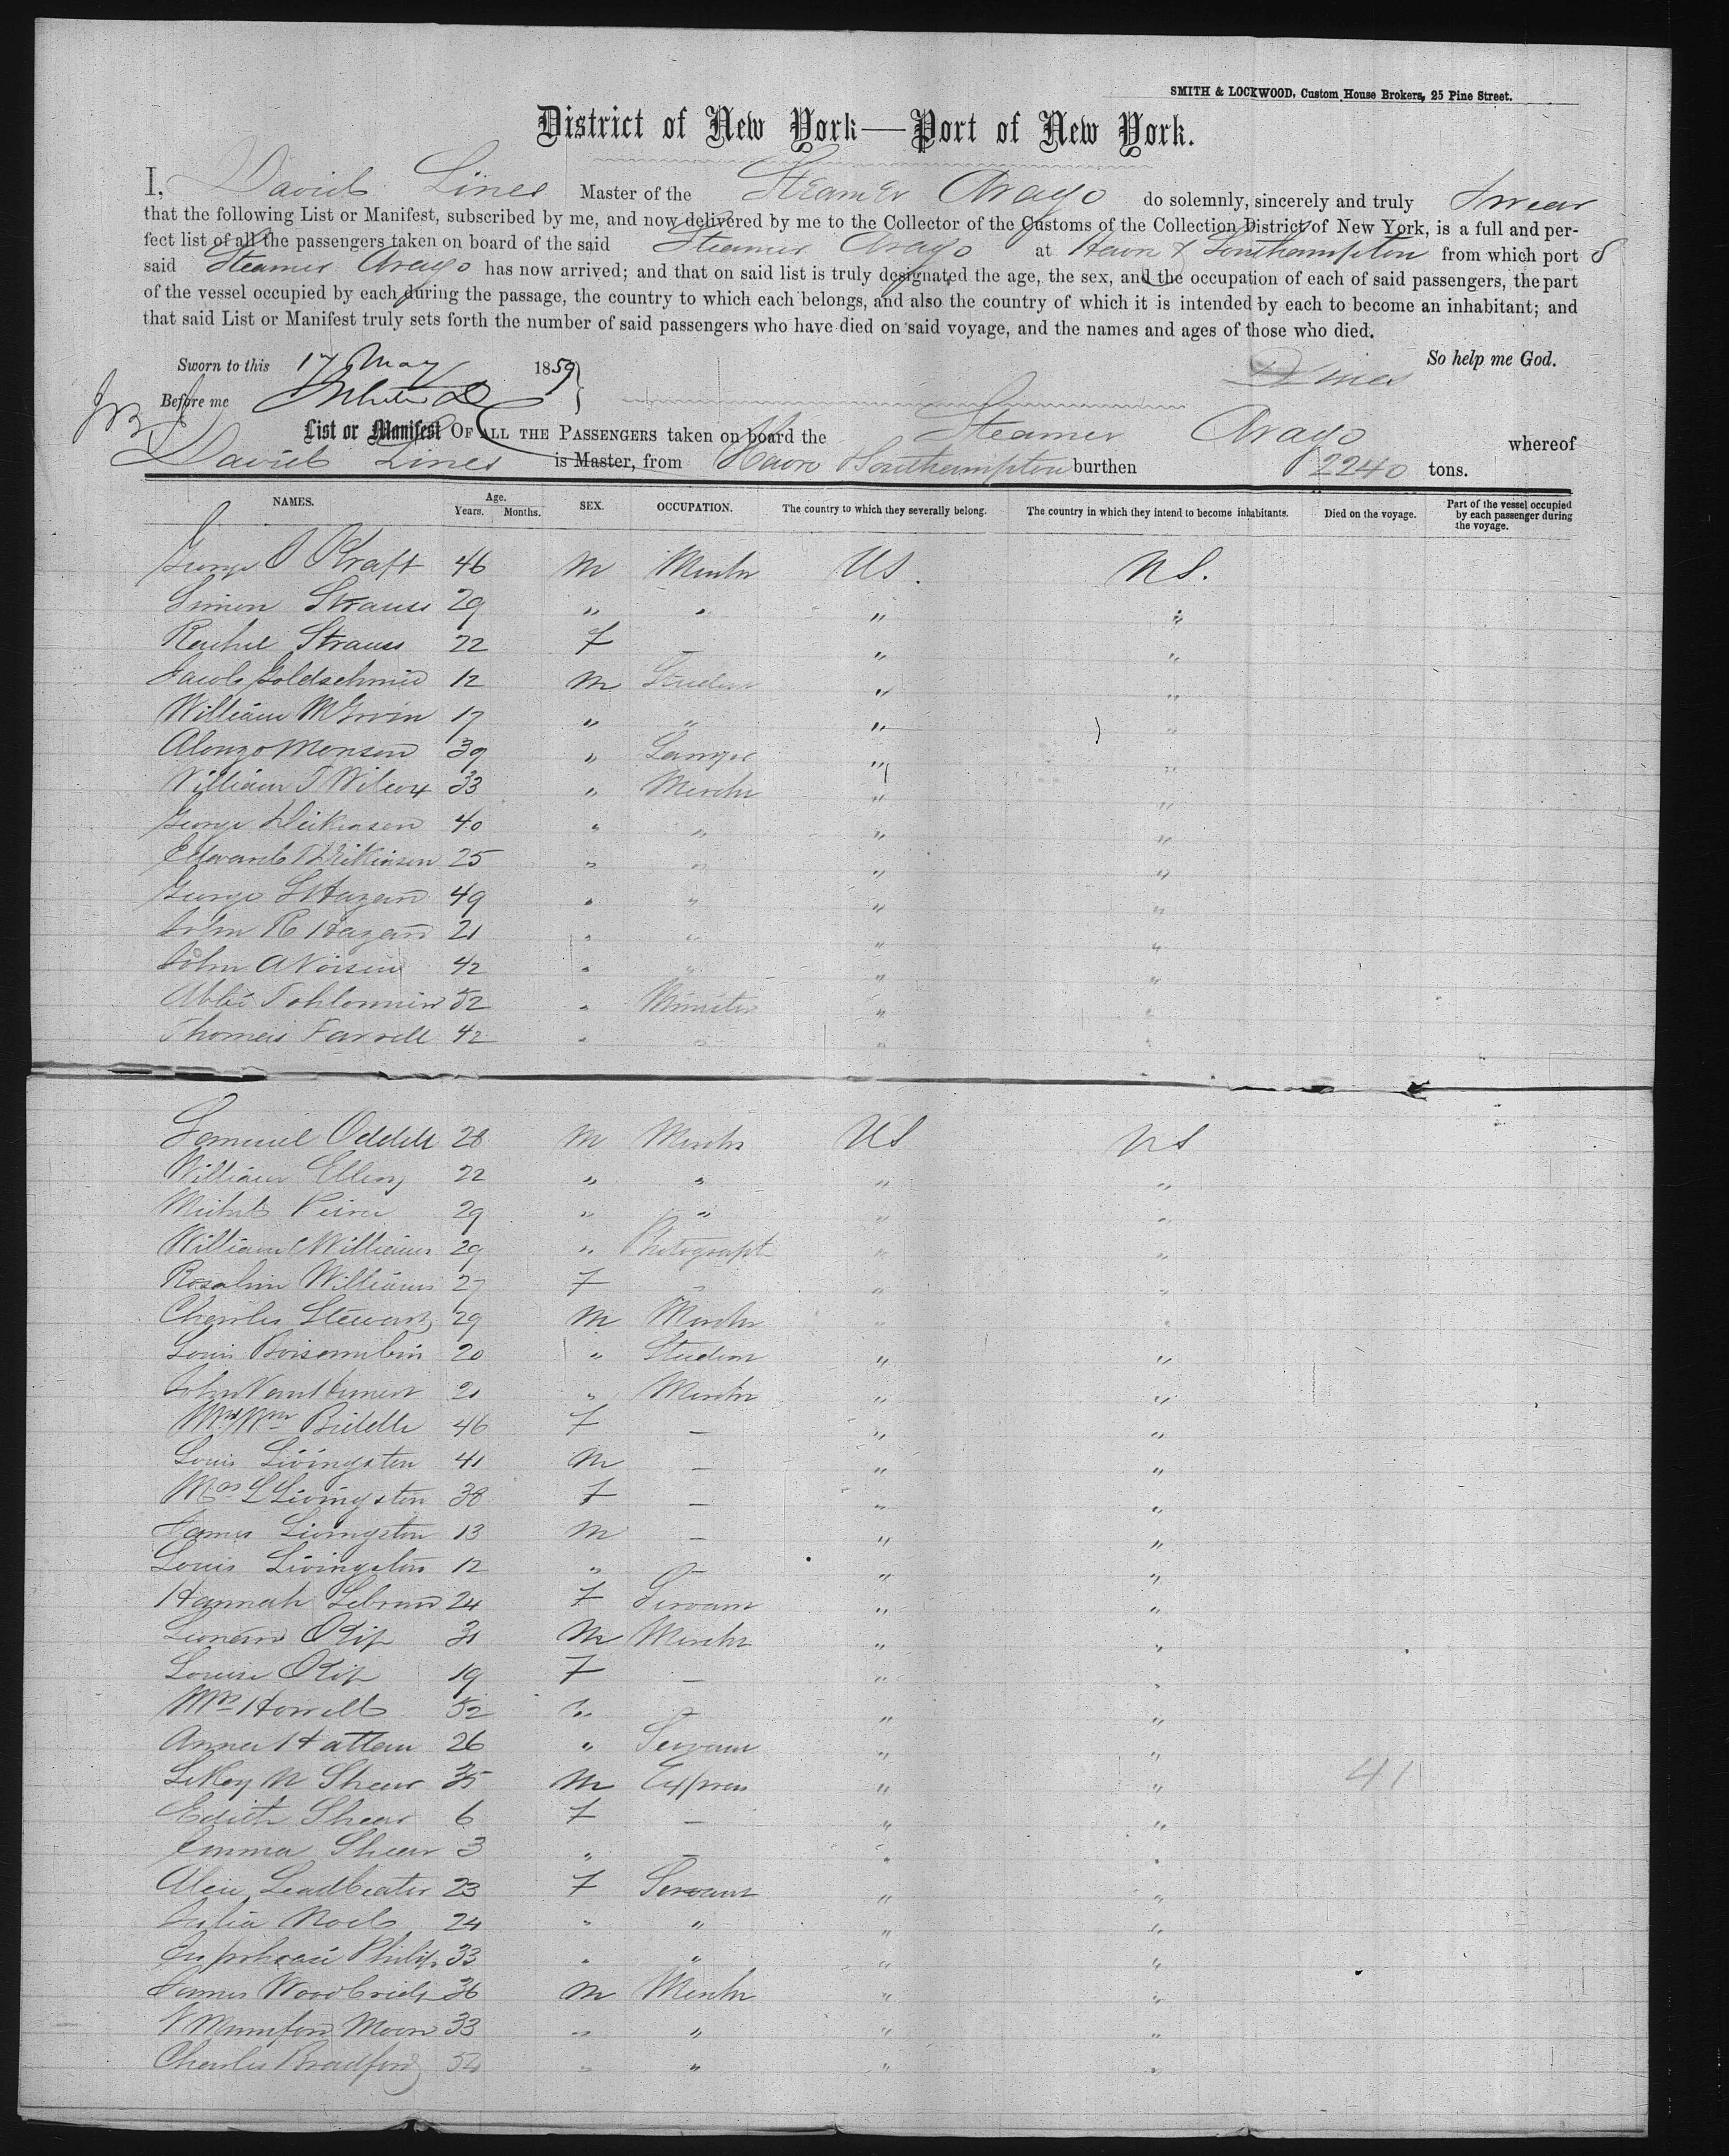 SMITH & LOCKWOOD, Custom House Brokers, 25 Pine Street.
District of New York—Port of New York.
I, David Lines Master of the Steamer Arago do solemnly, sincerely and truly Swear
that the following List or Manifest, subscribed by me, and now delivered by me to the Collector of the Customs of the Collection District of New York, is a full and per-
fect list of all the passengers taken on board of the said Steamer Arago at Havre & Southampton from which port S
said Steamer Arago has now arrived; and that on said list is truly designated the age, the sex, and the occupation of each of said passengers, the part
of the vessel occupied by each during the passage, the country to which each belongs, and also the country of which it is intended by each to become an inhabitant; and
that said List or Manifest truly sets forth the number of said passengers who have died on said voyage, and the names and ages of those who died.
So help me God.
Sworn to this 17 May 1859
D Lines
Before me
List or Manifest OF ALL THE PASSENGERS taken on board the Steamer Arago whereof
David Lines is Master, from Havre Southampton burthen 2240 tons.
NAMES. Age. Years. Months. SEX. OCCUPATION. The country to which they severally belong. The country in which they intend to become inhabitants. Died on the voyage. Part of the vessel occupied by each passenger during the voyage.
George O Kraft 46 M Mercht US. US.
Simon Strauss 29 " " " "
Rachel Strauss 22 F — " "
Jacob Goldschmid 12 M Student " "
William McGrvin 17 " " " "
Alonzo Monson 39 " Lawyer " "
William T Wilcox 33 " Mercht " "
George Dickinson 40 " " " "
Edward Dickinson 25 " " " "
George S Hazard 49 " " " "
John R Hazard 21 " " " "
John A Voisin 42 " " " "
Abbé 52 " Minister " "
Thomas Farrell 42 " " " "
Samuel Odell 28 M Mercht US US
William Ellery 22 " " " "
29 " " " "
William Williams 29 " Photograpt " "
Rosaline Williams 27 F — " "
Charles Stewart 29 M Mercht " "
Louis 20 " Student " "
John 21 " Mercht " "
Mrs Wm Biddle 46 F — " "
Louis Livingston 41 M — " "
Mrs L Livingston 38 F — " "
James Livingston 13 M — " "
Louis Livingston 12 " — " "
Hannah Lebrun 24 F Servant " "
Leonard Kip 31 M Mercht " "
Louise Kip 19 F — " "
Mrs Howell 52 " — " "
Anna Hattan 26 " Servant " "
LeRoy N Shear 35 M Express " " 41
Edith Shear 6 F — " "
Emma Shear 3 " — " "
Alice Leadbeater 23 F Servant " "
Julia Noel 24 " " " "
Philip 33 " " " "
James Woodbridge 36 M Mercht " "
Mumford Moore 33 " " " "
Charles Bradford " " " "